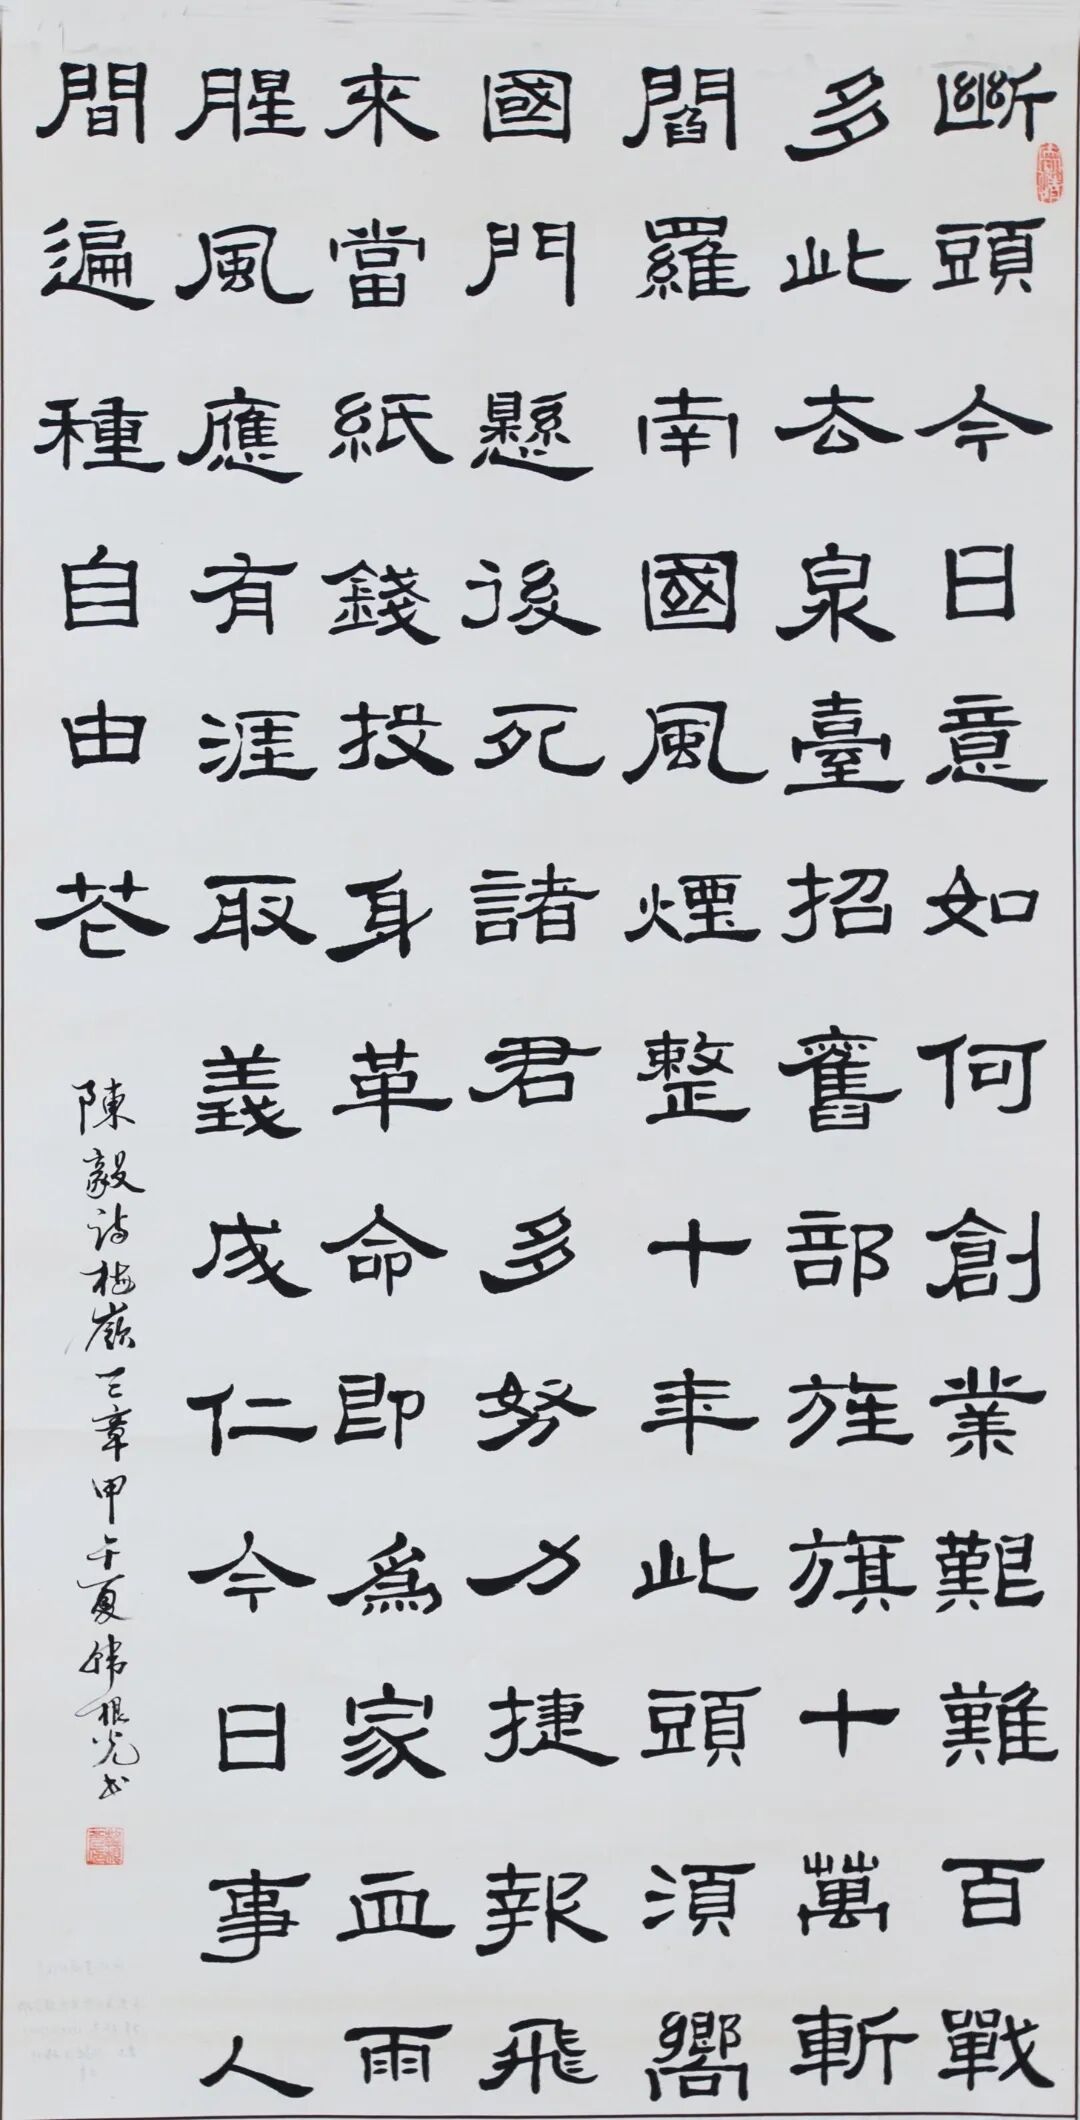 斷頭今日意如何創業艱難百戰
多此去泉臺招舊部旌旗十萬斬
閻羅南國風煙整十年此頭須嚮
國門懸後死諸君多努力捷報飛
來當紙錢投身革命即爲家血雨
腥風應有涯取義成仁今日事人
間遍種自由花
陳毅诗梅嶺三章甲午夏韩根光书